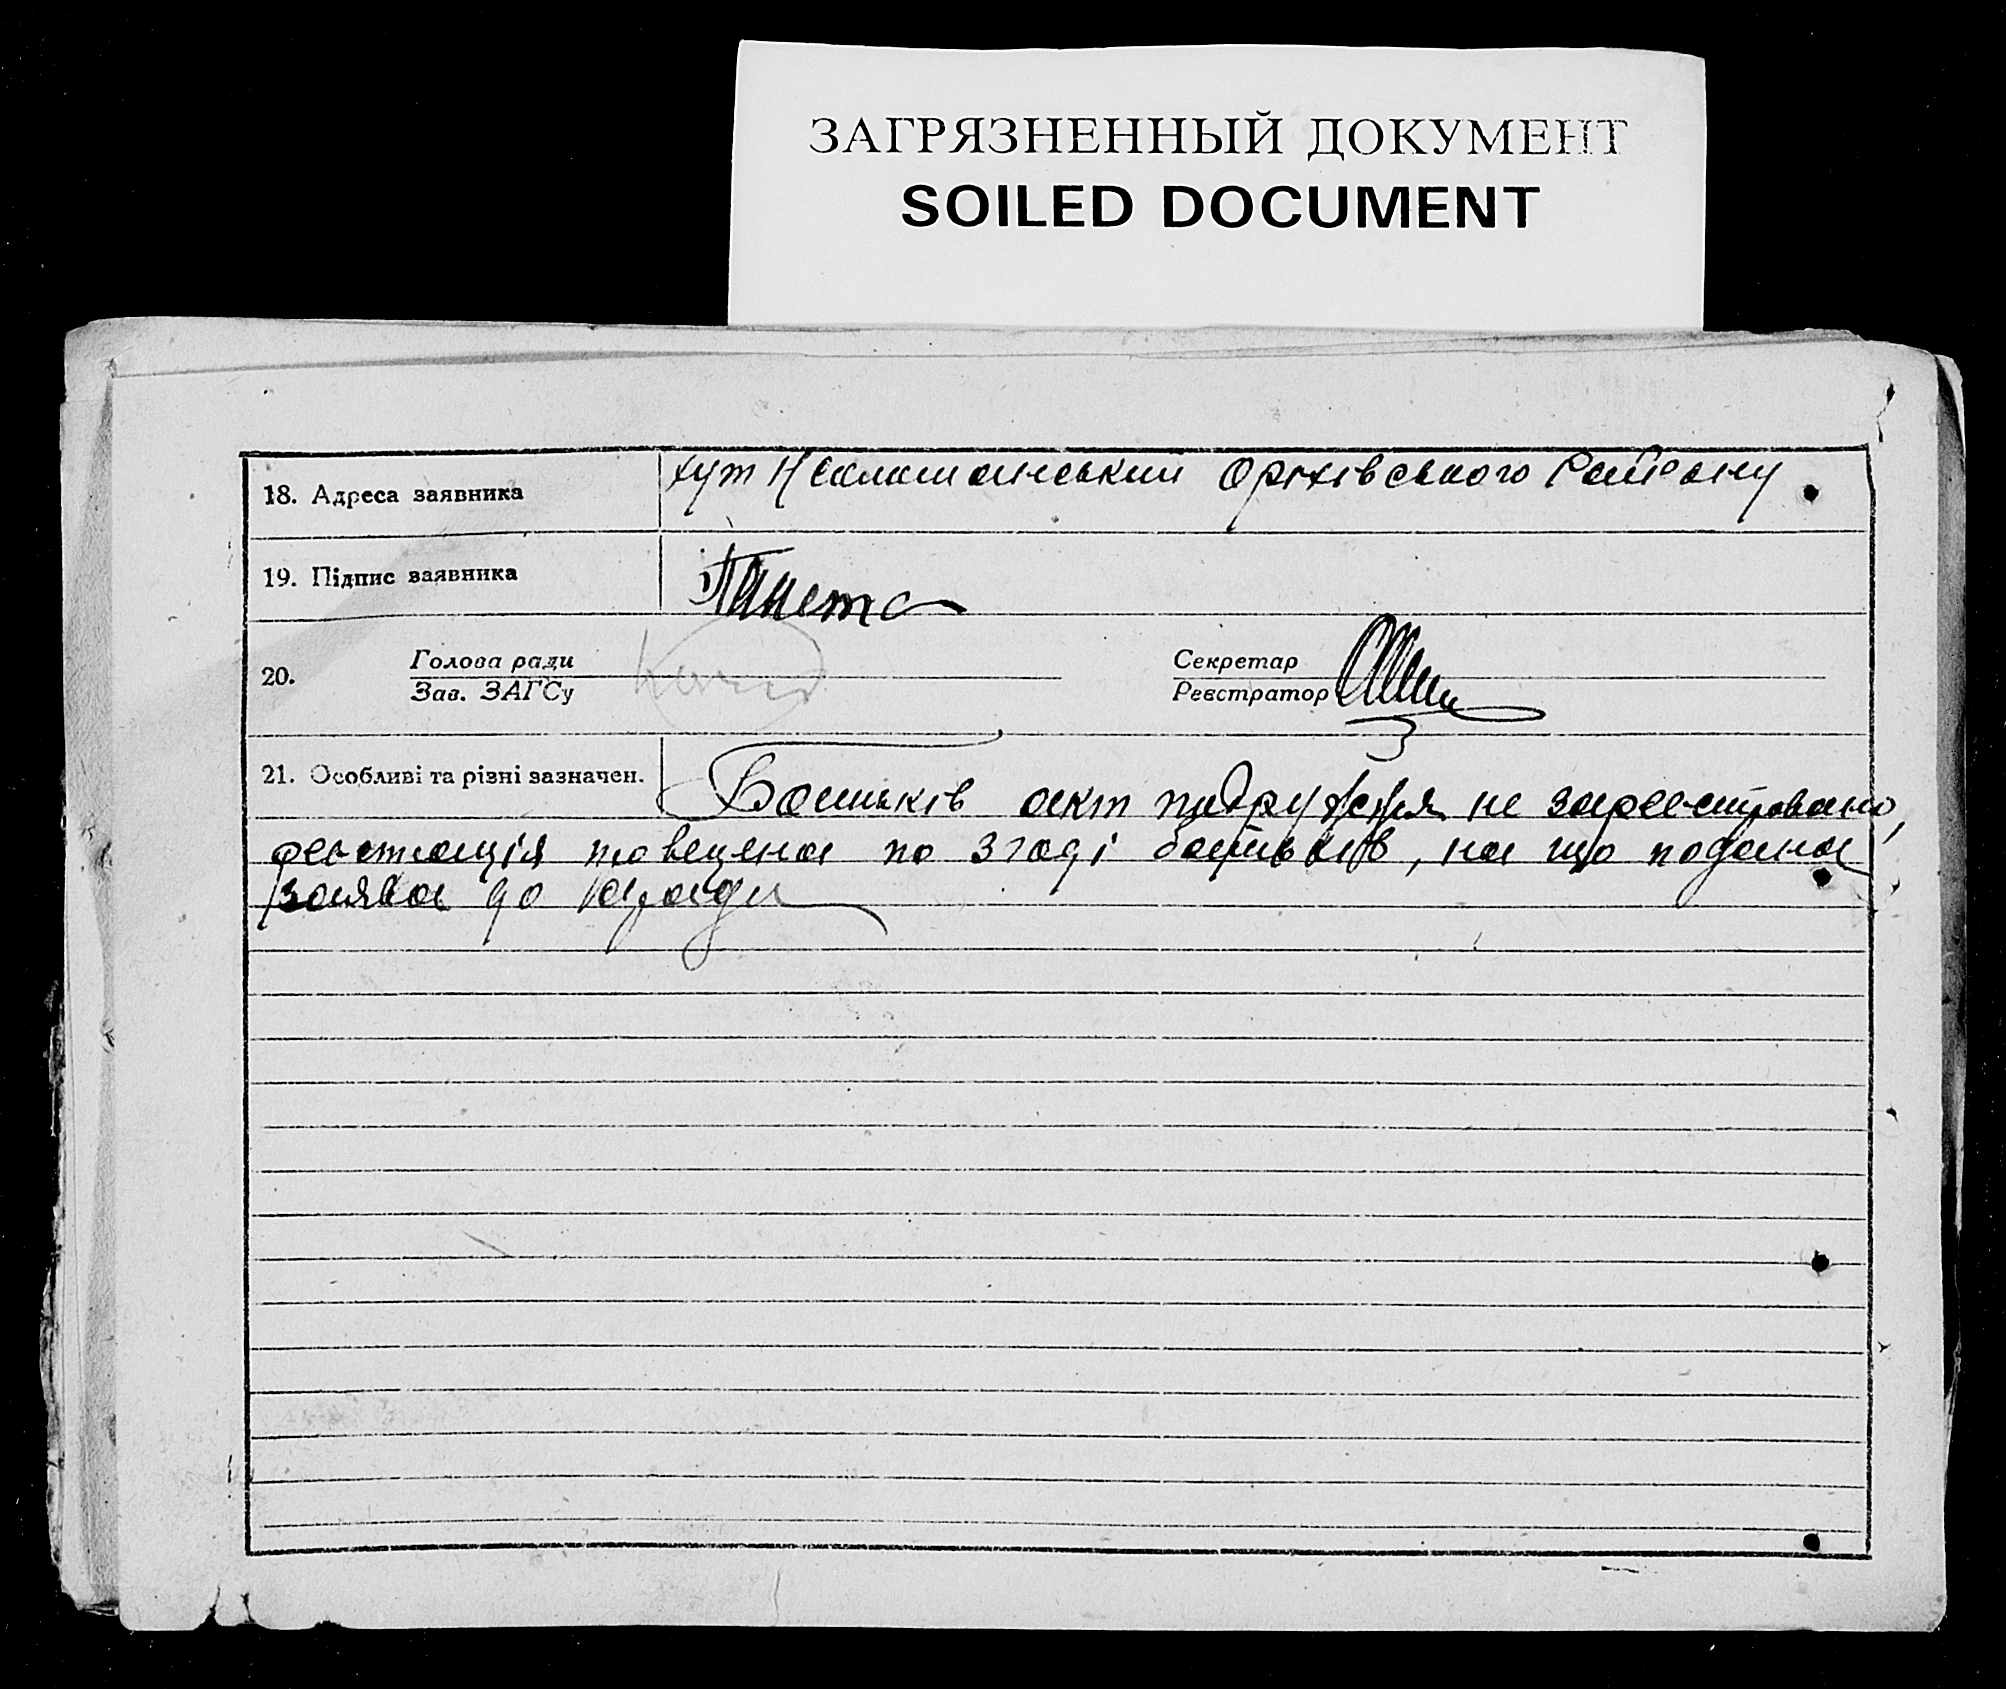 ЗАГРЯЗНЕННЫЙ ДОКУМЕНТ
SOILED DOCUMENT
18. Адреса заявника хут Оріхівського Району
19. Підпис заявника
20. Голова ради Секретар
Зав. ЗАГСу Реєстратор
21. Особливі та різні зазначен. Батьків акт подружжя не зареєстровано,
реєстрація проведена по згоді батьків, на що подана
заява до с/ради